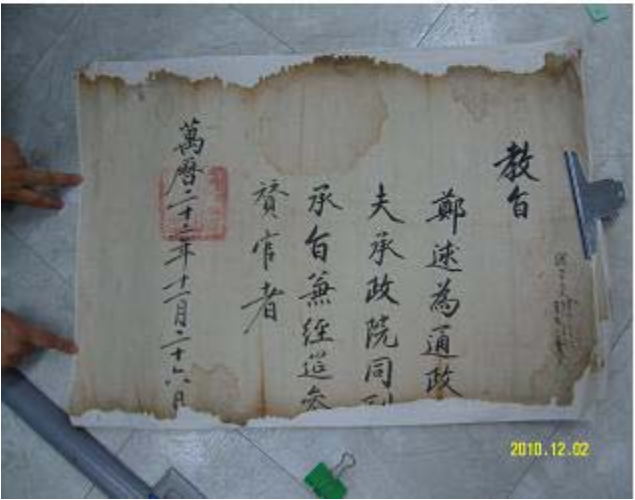 教旨
鄭逑為通政
夫承政院同
承旨兼經筵參
賛官者
萬曆二十二年十一月二十六日
2010.12.02